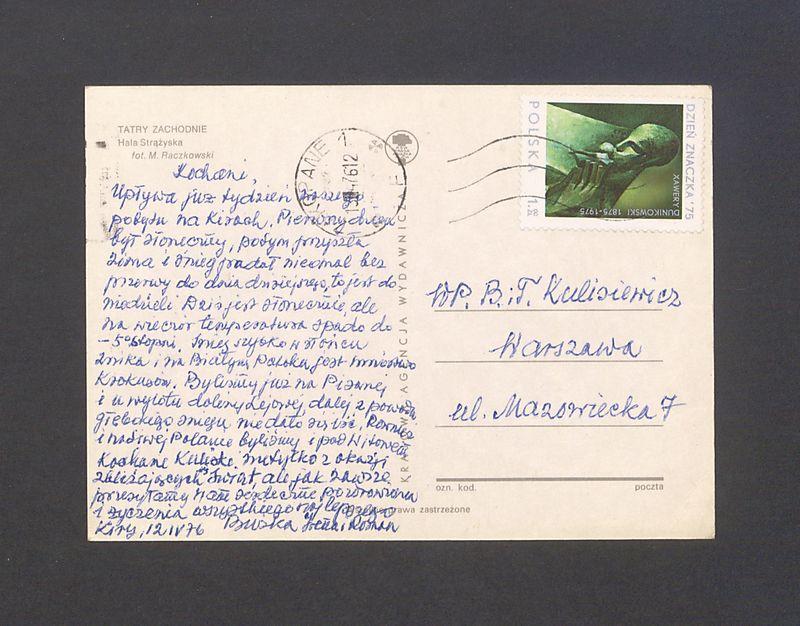 TATRY ZACHODNIE
Hala Strążyska
fot. M. Raczkowski
Kochani,
Upływa już tydzień naszego
pobytu na Kirach. Pierwszy dzień
był słoneczny, potym przyszła
zima i śnieg padał niemal bez
przerwy do dnia dzisiejszego, to jest do
niedzieli Dziś jest słonecznie, ale
na wieczór temperatura spada do
-5° stopni. Śnieg szybko w słońcu
znika i na Białym Potoku jest mnóstwo
Krokusów. Byliśmy już na Pisanej
i u wylotu doliny Lejowej, dalej z powodu
głębokiego śniegu nie dało się iść. Również
i na Siwej Polanie byliśmy i pod Witowem
Kochane Kuliski. nie tylko z okazji
zbliżających się Świąt ale jak zawsze
przesyłamy Wam serdeczne pozdrowienia
i życzenia wszystkiego najlepszego
Kiry, 12 IV 76 Buzka Irena i Roman
ZAKOPANE 1
76 12
KRAJOWA AGENCJA WYDAWNICZA
POLSKA 1.50
DZIEŃ ZNACZKA '75
XAWERY
DUNIKOWSKI 1875-1975
WP. B. i T. Kulisiewicz
Warszawa
ul. Mazowiecka 7
ozn. kod. poczta
prawa zastrzeżone